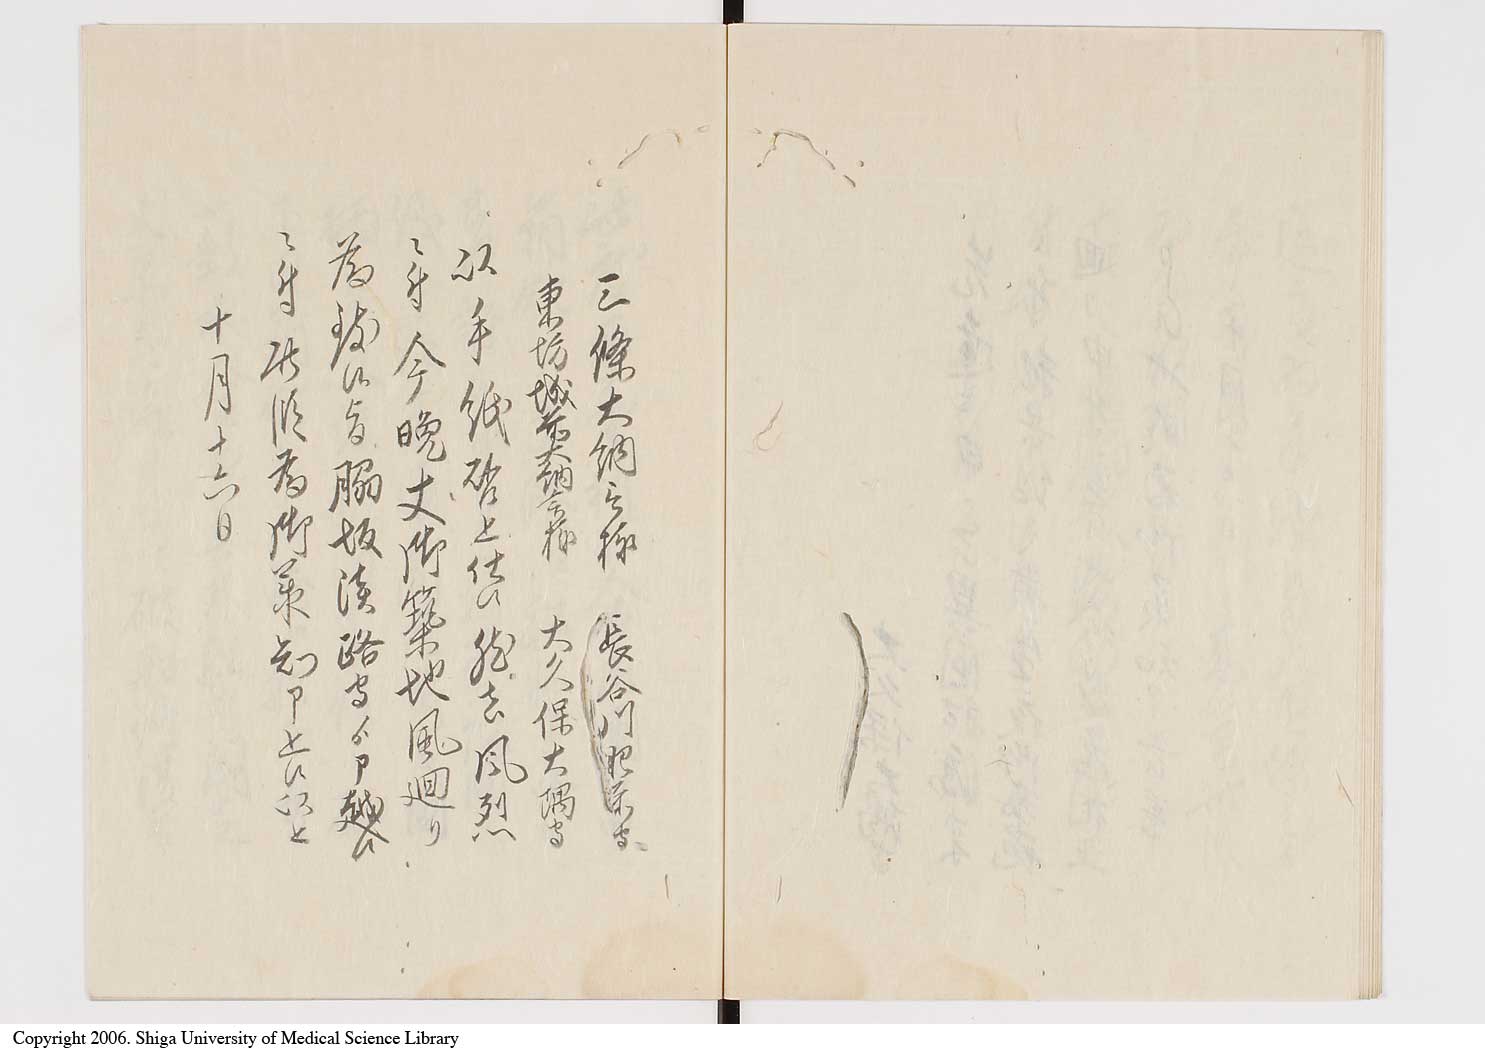 三條大納言様　長谷川肥前守
東坊城前大納言様　大久保大隅守
以手紙啓上仕候然者風烈
ニ付今晩丈御築地風廻り
為致候旨脇坂淡路守ゟ申越候
ニ付此段為御承知申上候以上
十月十六日
Copyright 2006. Shiga University of Medical Science Library